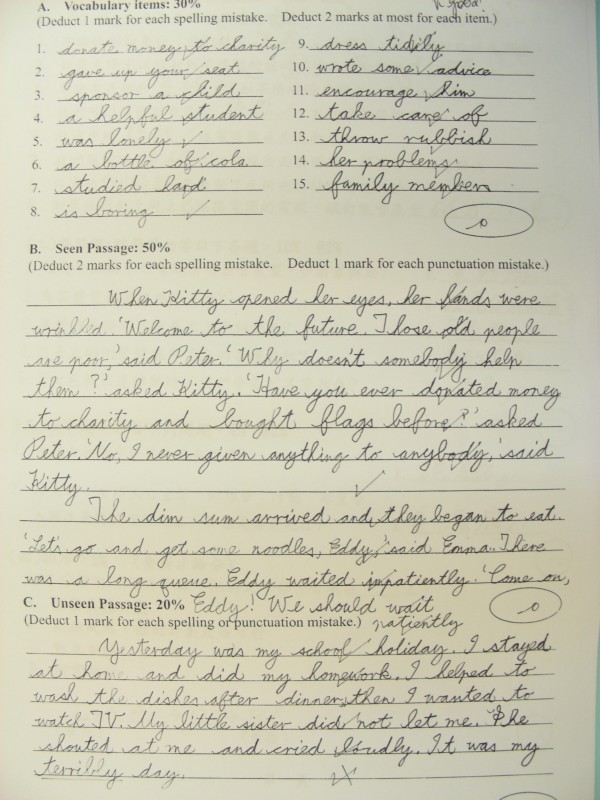 A. Vocabulary items: 30%
(Deduct 1 mark for each spelling mistake. Deduct 2 marks at most for each item.)
1. donate money to charity
2. gave up your seat
3. sponsor a child
4. a helpful student
5. was lonely
6. a bottle of cola
7. studied hard
8. is boring
9. dress tidily
10. wrote some advice
11. encourage him
12. take care of
13. throw rubbish
14. her problems
15. family members
0
B. Seen Passage: 50%
(Deduct 2 marks for each spelling mistake. Deduct 1 mark for each punctuation mistake.)
When Kitty opened her eyes, her hands were
wrinklid. 'Welcome to the future. Those old people
are poor,' said Peter. 'Why doesn't somebody help
them?' asked Kitty. 'Have you ever donated money
to charity and bought flags before?' asked
Peter. 'No, I never given anything to anybody,' said
Kitty.
The dim sum arrived and they began to eat.
'Let's go and get some noodles, Eddy,' said Emma. There
was a long queue. Eddy waited impatiently. 'Come on,
Eddy! We should wait
patiently
0
C. Unseen Passage: 20%
(Deduct 1 mark for each spelling or punctuation mistake.)
Yesterday was my school holiday. I stayed
at home and did my homework. I helped to
wash the dishes after dinner, then I wanted to
watch TV. My little sister did not let me. She
shouted at me and cried loudly. It was my
terribly day.